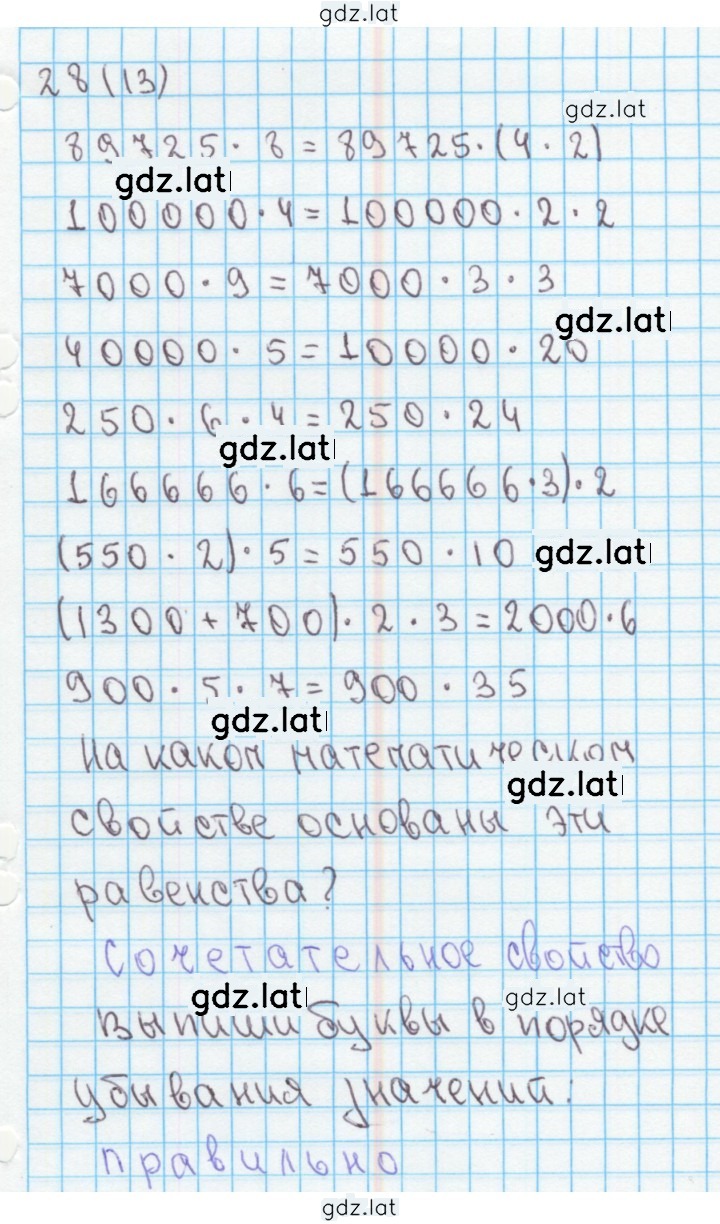 gdz.lat
28(13)
gdz.lat
89725 · 8 = 89725 · (4 · 2)
gdz.lat
100000 · 4 = 100000 · 2 · 2
7000 · 9 = 7000 · 3 · 3
gdz.lat
40000 · 5 = 10000 · 20
250 · 6 · 4 = 250 · 24
gdz.lat
166666 · 6 = (166666 · 3) · 2
(550 · 2) · 5 = 550 · 10 gdz.lat
(1300 + 700) · 2 · 3 = 2000 · 6
900 · 5 · 7 = 900 · 35
gdz.lat
На каком математическом
gdz.lat
свойстве основаны эти
равенства?
Сочетательное свойство
gdz.lat gdz.lat
Выпиши буквы в порядке
убывания значений:
правильно
gdz.lat